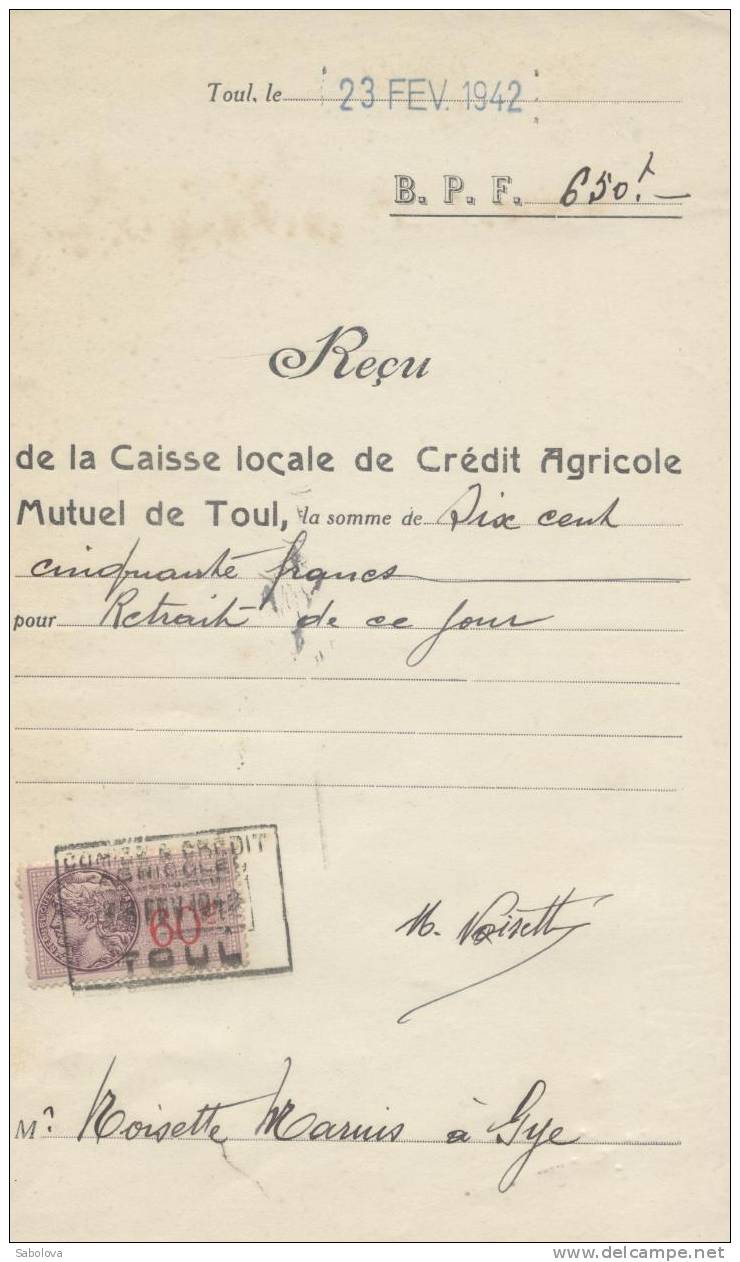 Toul, le 23 FEV. 1942
B. P. F. 650f.-
Reçu
de la Caisse locale de Crédit Agricole
Mutuel de Toul, la somme de Six cent
cinquante francs
pour Retrait de ce Jour
CREDIT
FEV 1942
60c
TOUL
M. Noisette
Mr. Noisette Marius à Gye
Sabolova
www.delcampe.net